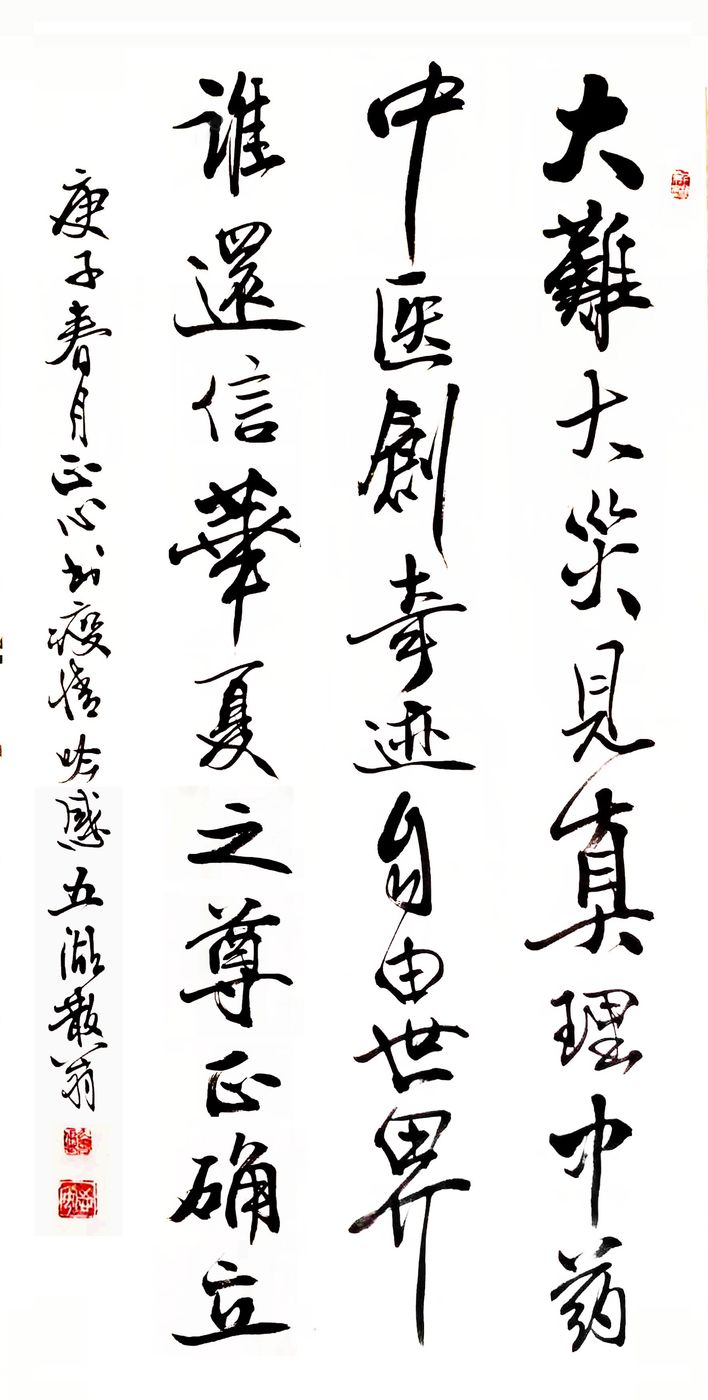 大難大災見真理中药
中医創奇迹自由世界
谁還信華夏之尊正确立
庚子春月正心書疫情吟感五湖散翁